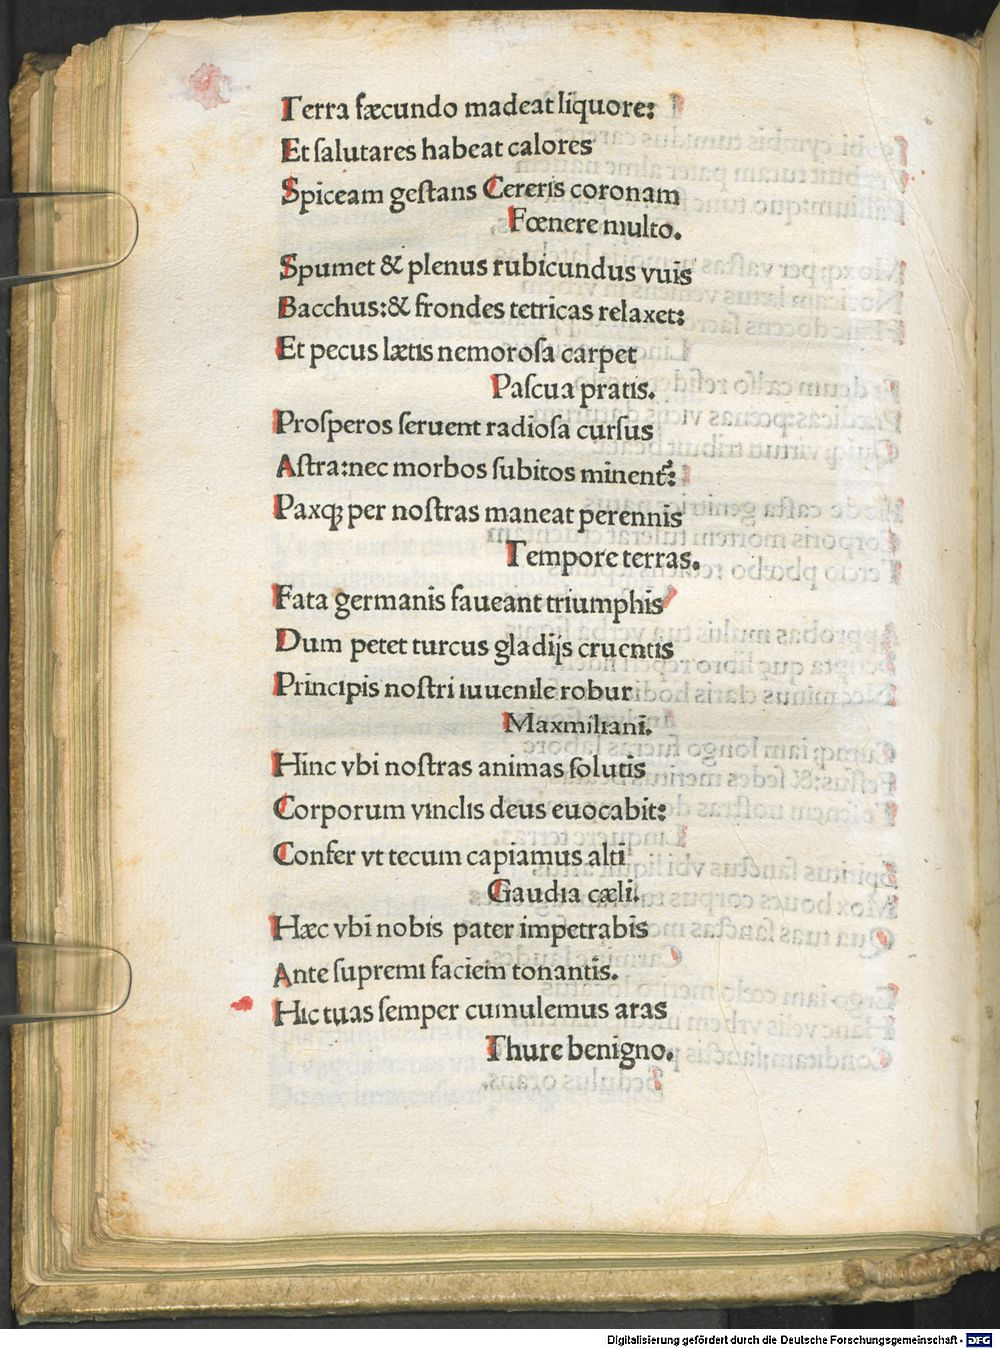 Terra fæcundo madeat liquore:
Et ſalutares habeat calores
Spiceam geſtans Cereris coronam
Fœnere multo.
Spumet & plenus rubicundus vuis
Bacchus:& frondes tetricas relaxet:
Et pecus lætis nemoroſa carpet
Paſcua pratis.
Proſperos ſeruent radioſa curſus
Aſtra:nec morbos ſubitos minent᷑:
Paxqꝫ per noſtras maneat perennis
Tempore terras.
Fata germanis faueant triumphis
Dum petet turcus gladijs cruentis
Principis noſtri iuuenile robur
Maxmiliani.
Hinc vbi noſtras animas ſolutis
Corporum vinclis deus euocabit:
Confer vt tecum capiamus alti
Gaudia cæli.
Hæc vbi nobis pater impetrabis
Ante ſupremi faciem tonantis.
Hic tuas ſemper cumulemus aras
Thure benigno.
Digitalisierung gefördert durch die Deutsche Forschungsgemeinschaft - DFG